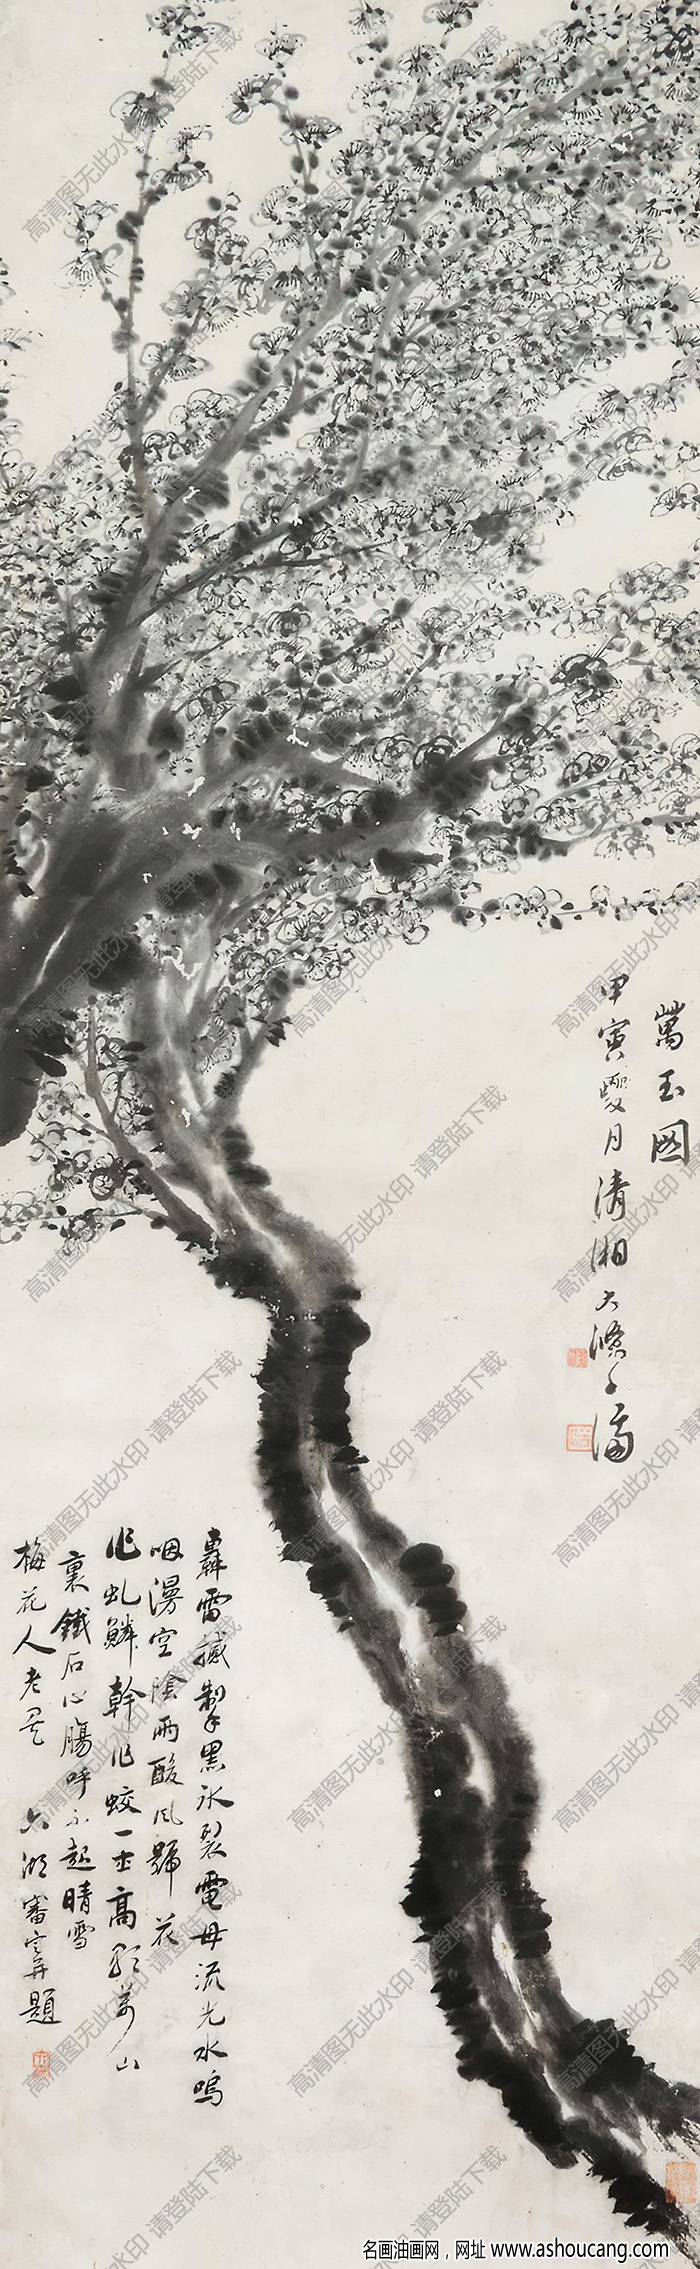 萬玉圖
甲寅夏月清湘大滌子濟
轟雷撼掣黑冰裂電母流光水嗚
咽漫空陰雨酸風號花
作虬鱗幹作蛟一士高臥萬山
裏鐵石心腸呼不起晴雪
梅花人老矣
六湖審定并題
高清图无此水印 请登陆下载
名画油画网，网址 www.ashoucang.com